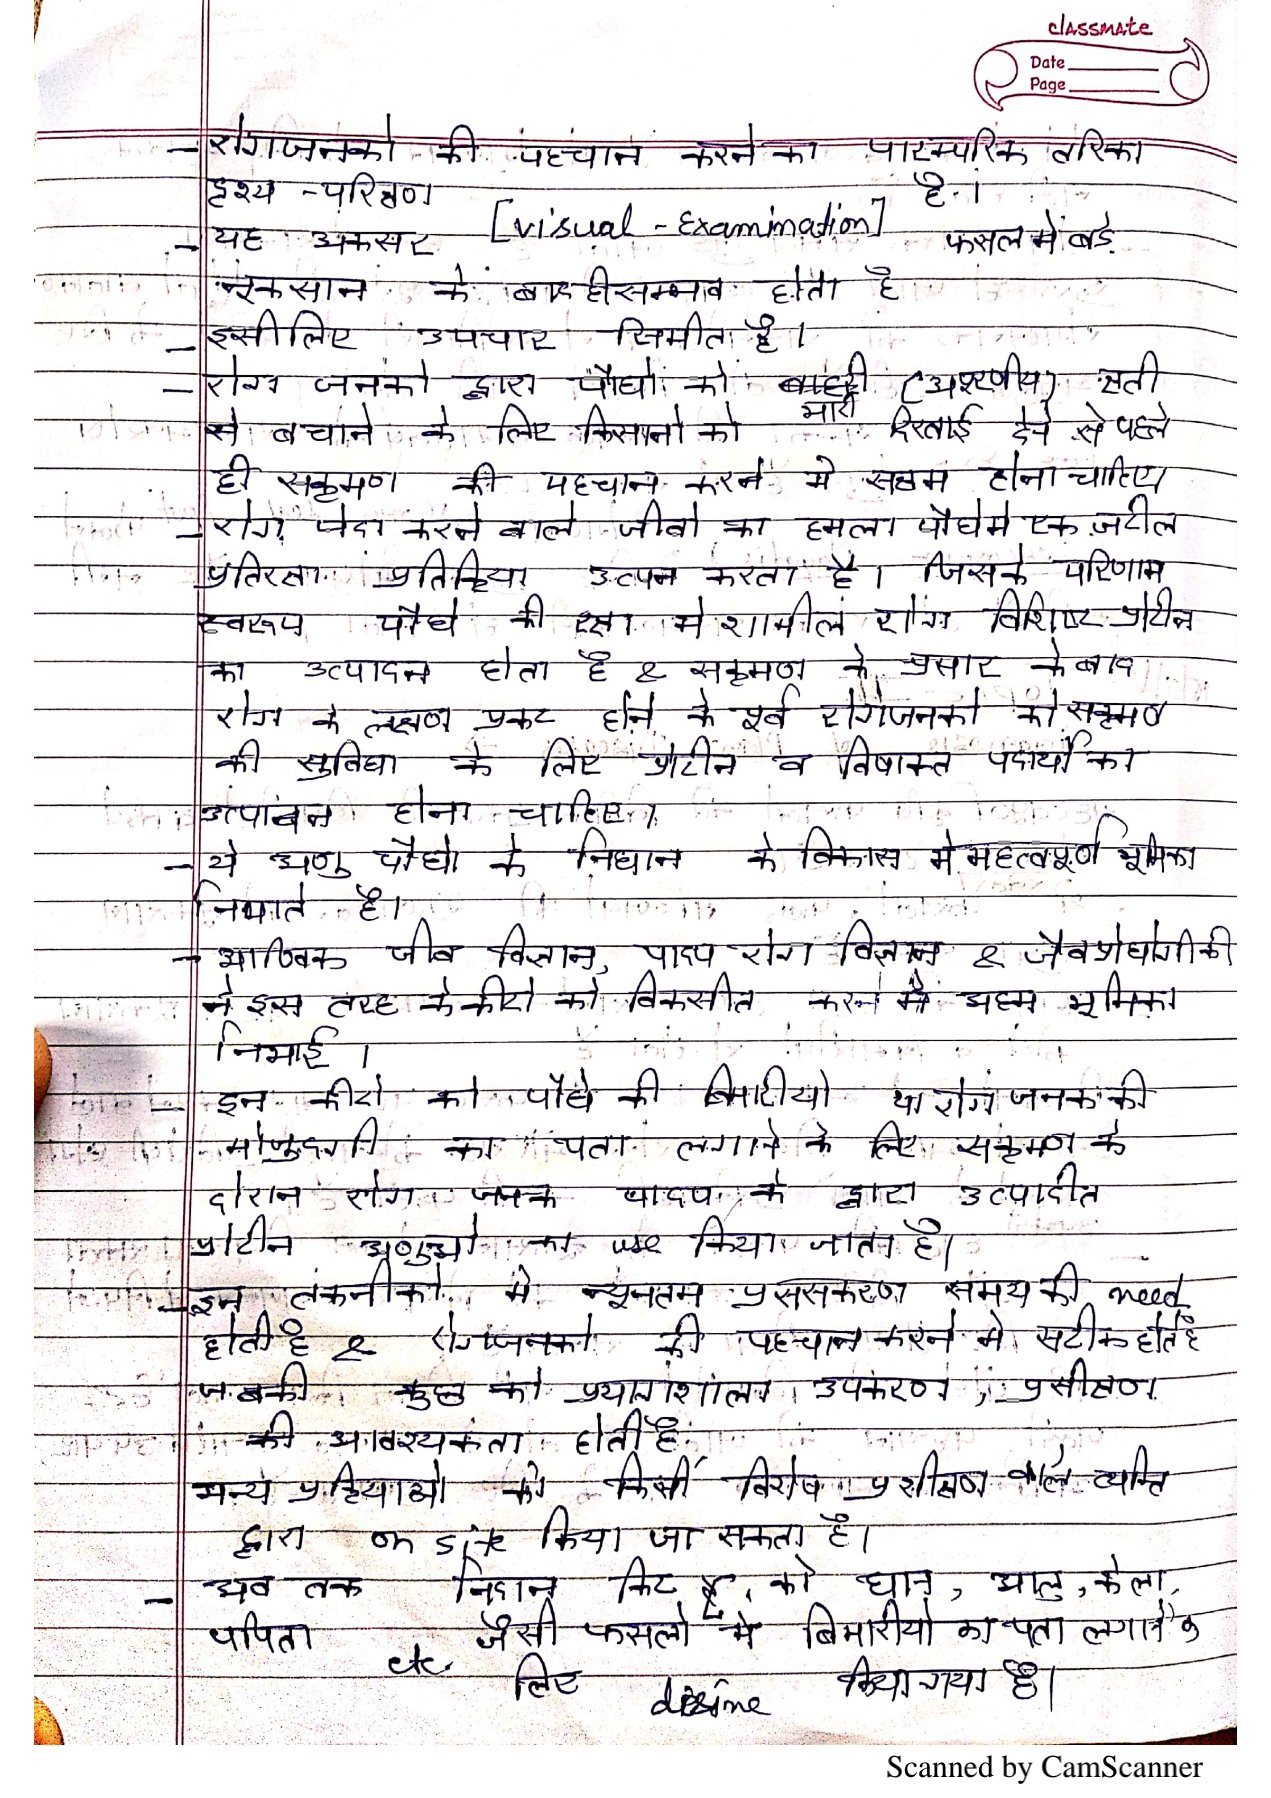 classmate
Date
Page
- रोगजनको की पहचान करने का पारम्परिक तरिका
दृश्य - परिक्षण [visual - Examination] है।
- यह अकसर फसल मे बड़े
नुकसान के बाद ही सम्भव होता है
- इसीलिए उपचार सिमीत है।
- रोग जनको द्वारा पौधो को बाहरी भारी क्षती
से बचाने के लिए किसानो को दिखाई देने से पहले
ही सक्रमण की पहचान करने मे सक्षम होना चाहिए।
- रोग पेदा करने वाले जीवो का हमला पौधे मे एक जटील
प्रतिरक्षा प्रतिक्रिया उत्पन करता है। जिसके परिणाम
स्वरूप पौधे की रक्षा मे शामील रोग विशिष्ट प्रोटीन
का उत्पादन होता है & सक्रमण के प्रसार के बाद
रोग के लक्षण प्रकट होने के पूर्व रोगजनको को सक्रमण
की सुविधा के लिए प्रोटीन व विषाक्त पदार्थो का
उत्पादन होना चाहिए।
- ये अणु पौधो के निधान के विकास मे महत्वपूर्ण भूमिका
निभाते है।
- आण्विक जीव विज्ञान, पादप रोग विज्ञान & जैव प्रोधोगीकी
ने इस तरह के कीटो को विकसीत करने मे अहम भूमिका
निभाई।
- इन कीटो को पौधे की बिमारीयो या रोग जनक की
मोजुदगी का पता लगाने के लिए सक्रमण के
दोरान रोग जनक पादप के द्वारा उत्पादीत
प्रोटीन अणुओ का use किया जाता है।
- इन तकनीको मे न्यूनतम प्रससकरण समय की need
होती है & रोगजनको की पहचान करने मे सटीक होते है
जबकी कुछ को प्रयोगशाला उपकरण, प्रसीक्षण
की आवश्यकता होती है,
अन्य प्रक्रियाओ को किसी विशेष प्रशीक्षण वाले व्यक्ति
द्वारा on site किया जा सकता है।
- अब तक निदान किट को धान, आलु, केला,
पपिता etc. जैसी फसलो मे बिमारीयो का पता लगाने के
लिए किया गया है।
Scanned by CamScanner